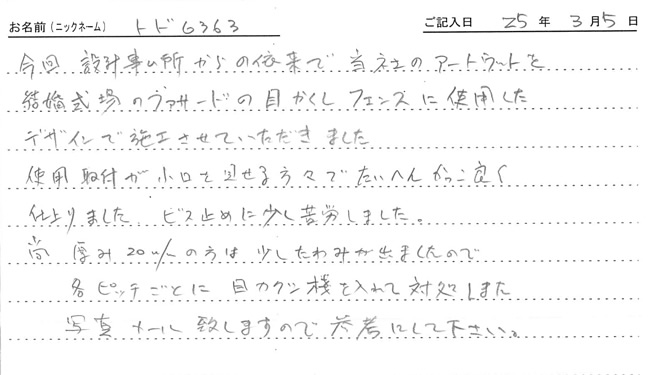 お名前(ニックネーム) トド6363 ご記入日 25年 3月5日
今回 設計事ム所からの依来で 当社のアートウッドを
結婚式場のファサードの目かくしフェンスに使用した
デザインで施工させていただきました
使用取付が小口を見せる方々でたいへんかっこ良く
仕上りました ビス止めに少し苦労しました。
尚 厚み20m/mの方は少したわみが出ましたので
各ピッチごとに目カクシ棧を入れて対処しました
写真メール致しますので参考にして下さい。